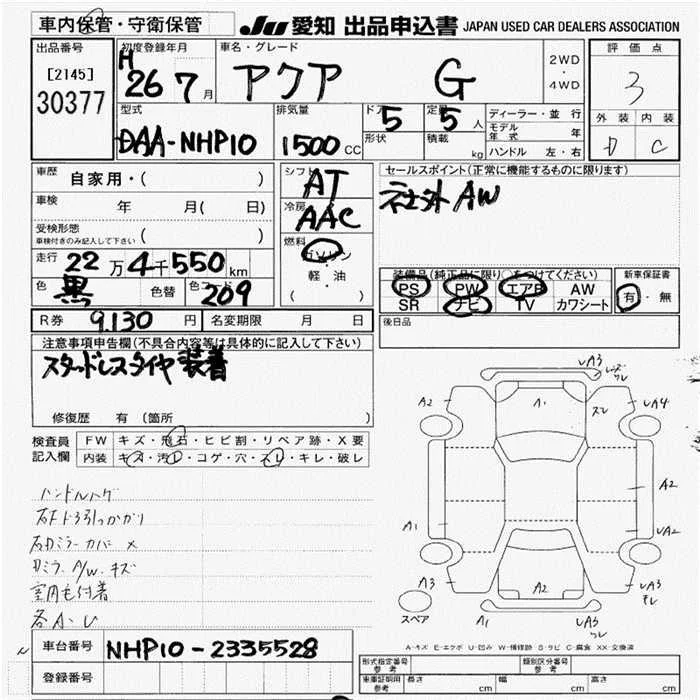 車内保管・守衛保管 JU 愛知 出品申込書 JAPAN USED CAR DEALERS ASSOCIATION
出品番号
[2145]
30377
初度登録年月
H 26 7 月
車名・グレード
アクア G
2WD
・
4WD
評価点
3
外装 内装
D C
型式
DAA-NHP10
排気量
1500 CC
ドア
5
形状
定員
5 人
積載 kg
ディーラー・並行
モデル年式 年
ハンドル 左・右
車歴 自家用・( )
車検 年 月( 日)
受検形態
車検付きのみ記入して下さい ( )
走行 22 万 4 千 550 km
色 黒 色替 色コード 209
シフト
AT
冷房
AAC
燃料
ガソリン
・
軽・油
( )
セールスポイント(正常に機能するものに限ります)
社外 AW
装備品(純正品に限り○をつけてください)
PS PW エアB AW
SR ナビ TV カワシート
新車保証書
有・無
R券 9.130 円 名変期限 月 日
後日品
注意事項申告欄(不具合内容等は具体的に記入して下さい)
スタッドレスタイヤ装着
修復歴 有 (箇所 )
検査員
記入欄
FW キズ・飛石・ヒビ割・リペア跡・X要
内装 キズ・汚レ・コゲ・穴・スレ・キレ・破レ
ハンドルハゲ
右ミラーカバー ×
A/W キズ
各A・U
UA3
A2 A1 スレ UA4
A2
A1 UA2
A3 A2 UA3
スペア A1 UA3
A-キズ E-エクボ U-凹み W-補修跡 S-サビ C-腐食 XX-交換済
車台番号 NHP10-2335528
登録番号
形式指定番号
参考
類別区分番号
参考
車庫証明用
参考
長さ cm 幅 cm 高さ cm